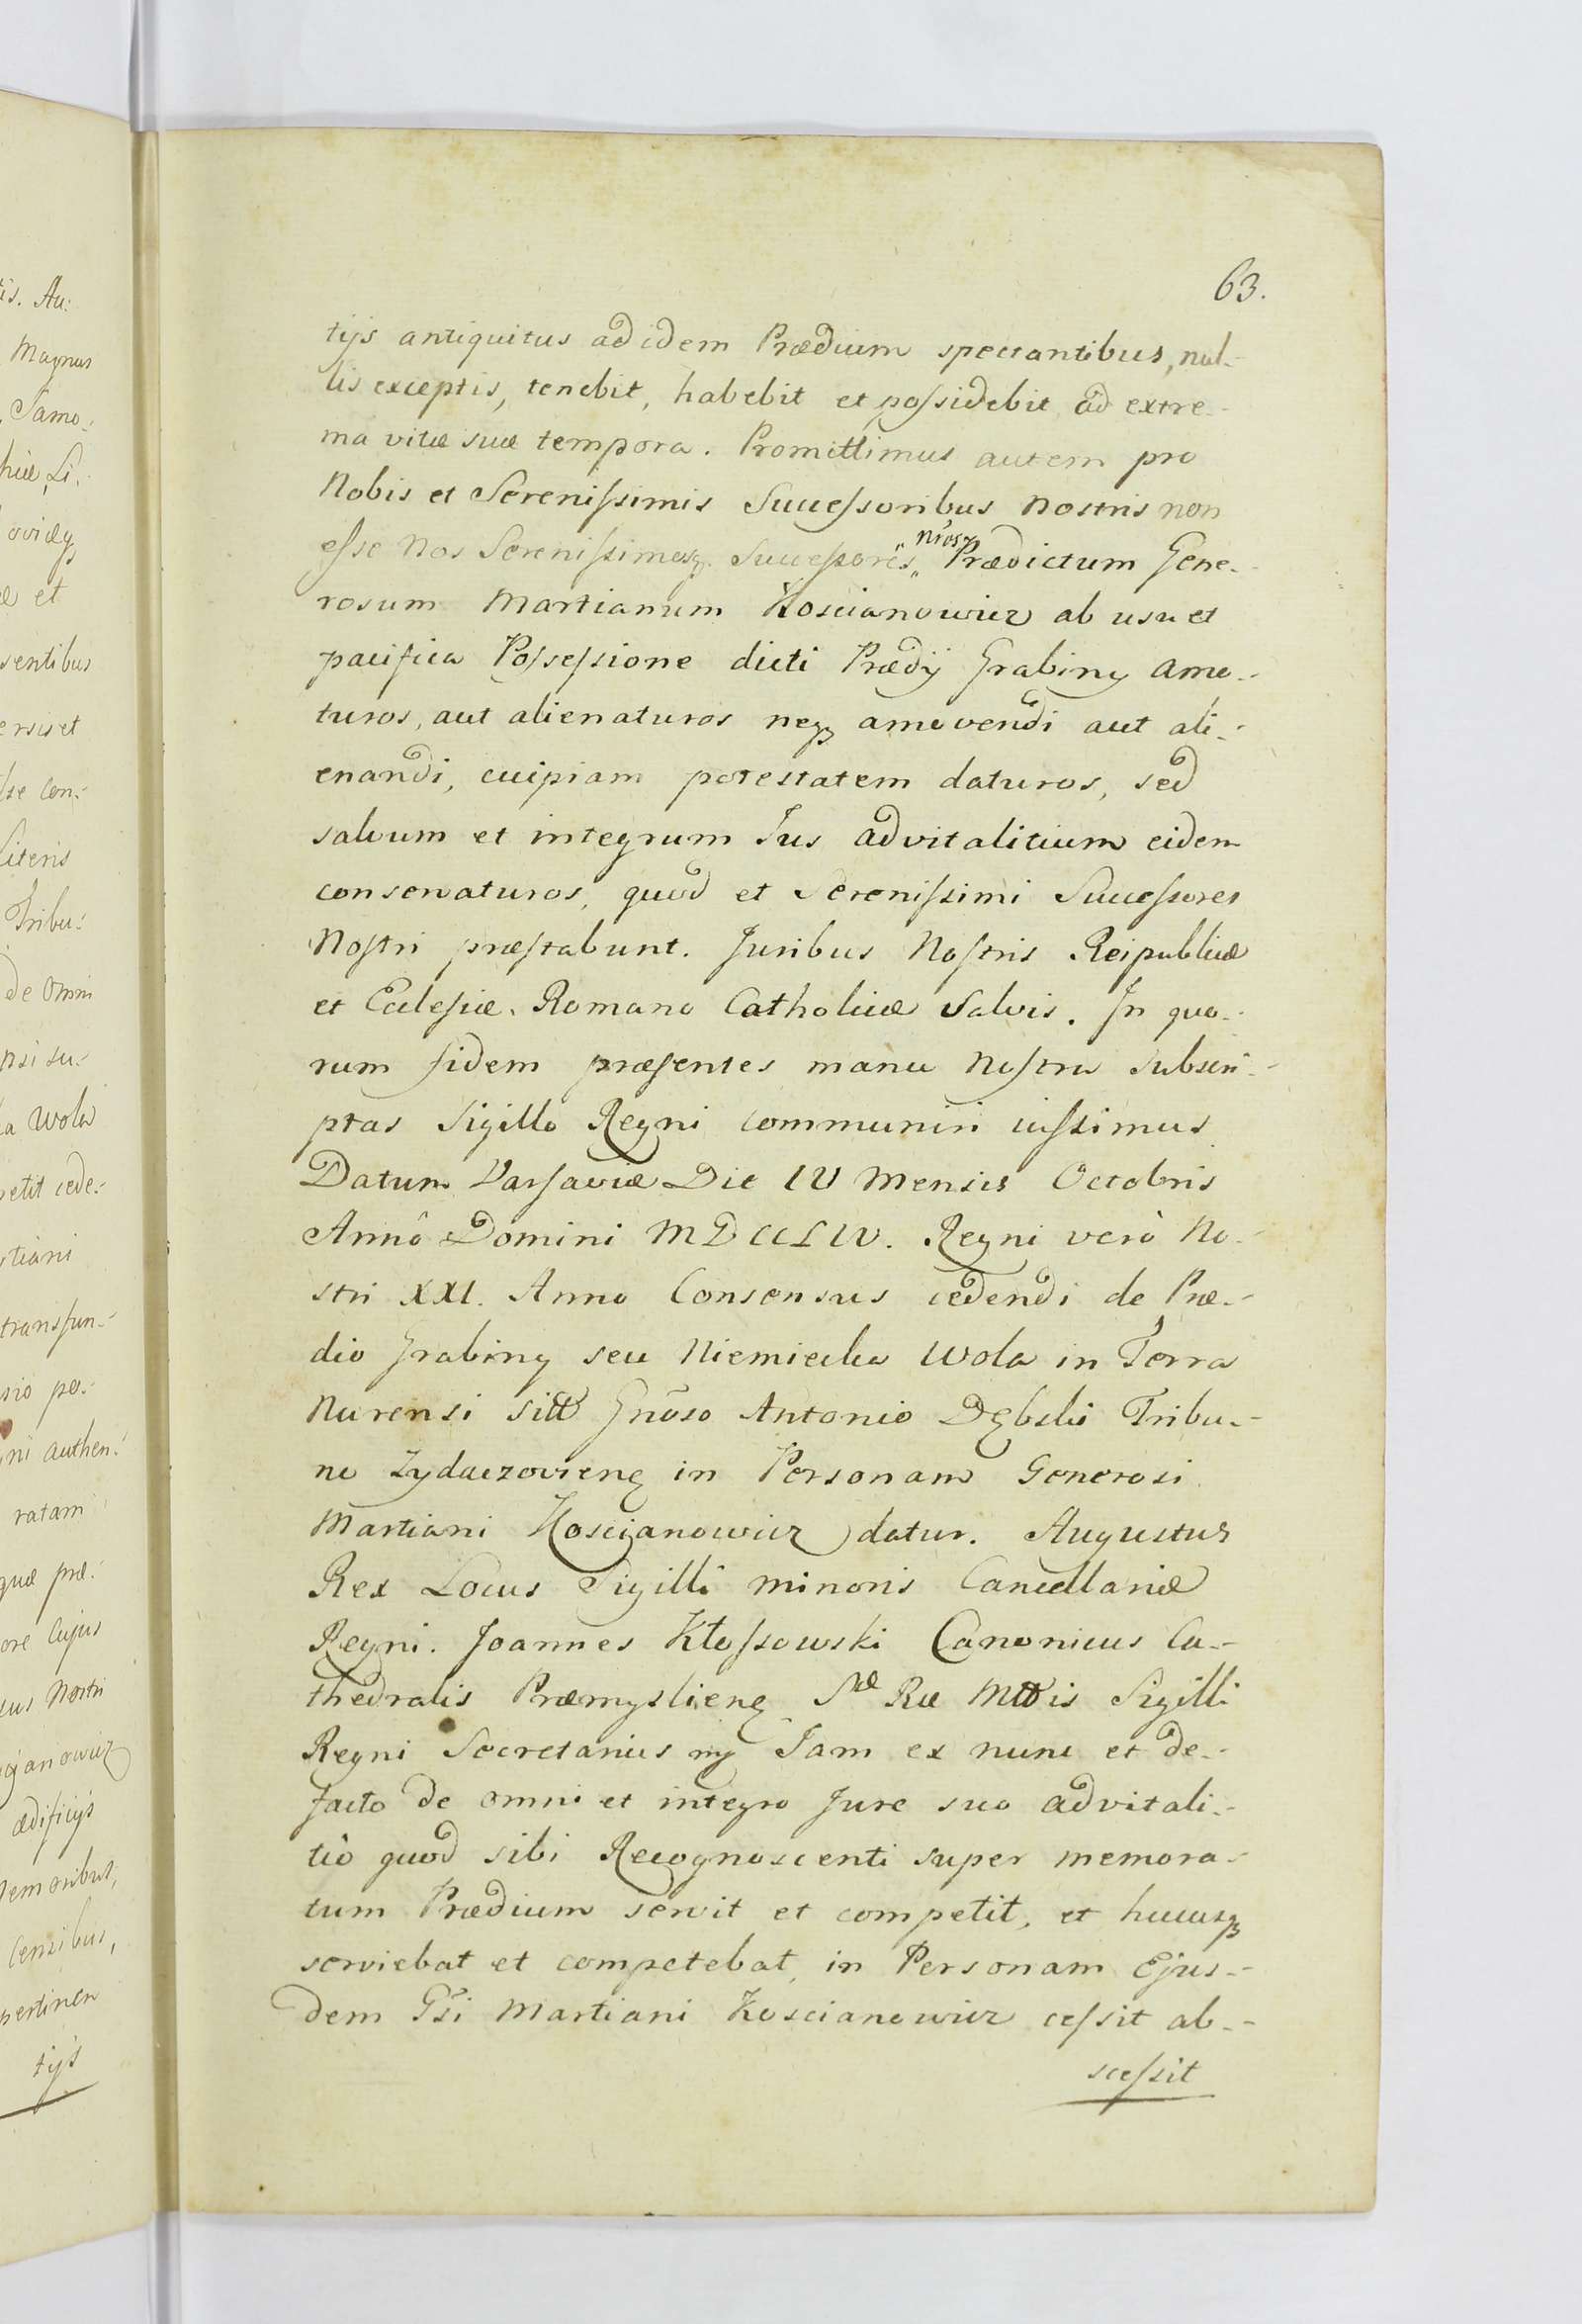 63.
tijs antiquitus ad idem Prædium spectantibus, nul-
lis exceptis, tenebit, habebit et possidebit ad extre-
ma vitæ suæ tempora. Promittimus autem pro
Nobis et Serenissimis Successoribus Nostris non
esse Nos Serenissimosq. Successores Prædictum Gene-
rosum Martianum Koscianowicz ab usu et
pacifica Possessione dicti Prædij Grabiny amo-
turos, aut alienaturos neq amovendi aut ali-
enandi, cuipiam potestatem daturos, sed
salvum et integrum Jus advitalitium eidem
conservaturos, quod et Serenissimi Successores
Nostri præstabunt. Juribus Nostris Reipublicæ
et Ecclesiæ Romano Catholicæ Salvis. In quo-
rum fidem præsentes manu Nostra Subscri-
ptas Sigillo Regni communiri iussimus
Datum Varsaviæ Die IV Mensis Octobris
Annô Domini MDCCLIV. Regni verò No-
stri XXI. Anno Consensus cedendi de Præ-
dio Grabiny seu Niemiecka Wola in Terra
Nurensi sitt Gnõso Antonio Dębski Tribu-
no Zydaczovieng in Personam Generosi
Martiani Koscijanowicz datur. Augustus
Rex Locus Sigilli minoris Cancellariæ
Regni. Joannes Kłossowski Canonicus Ca-
thedralis Præmyslieng Sæ Ræ Mttis Sigilli
Regni Secretarius mp Jam ex nunc et de-
facto de omni et integro Jure suo advitali-
tiò quod sibi Recognoscenti super memora-
tum Prædium servit et competit, et hucusq
serviebat et competebat, in Personam Ejus-
dem Gsi Martiani Koscianowicz cessit ab-
scessit